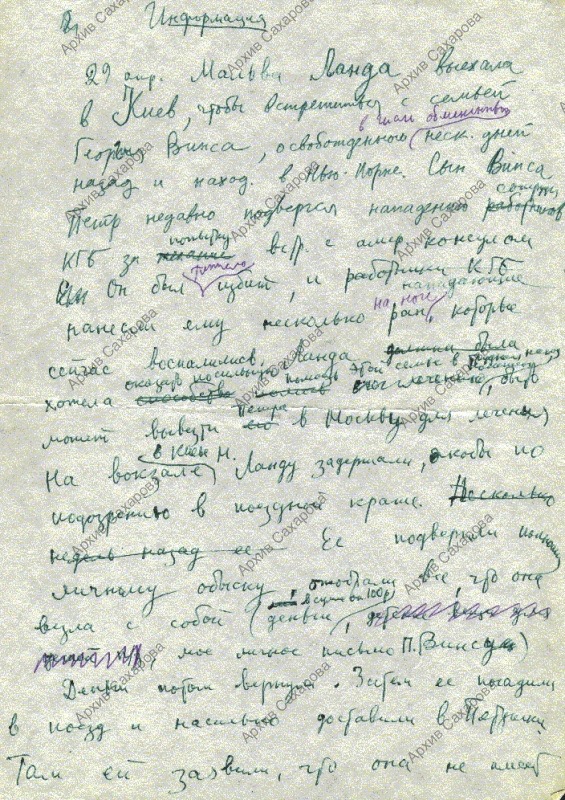 Информация
29 апр. Мальва Ланда выехала
в Киев, чтобы встретиться с семьей
в числе обмененных
Георгия Винса, освобожденного неск. дней
назад и наход. в Нью-Йорке. Сын Винса
Петр недавно подвергся нападению сотрудн. работников
КГБ за желание попытку встр. с амер. консулом
Он был тяжело избит, и работники КГБ нападающие
нанесли ему несколько ран на ноге, которые
сейчас воспалились. Ланда должна была
хотела оказать посильную помощь этой семье в
может вывезти его Петра в Москву для лечения)
На вокзале в Киеве М. Ланду задержали, якобы по
подозрению в поездной краже. Несколько
недель назад ее Ее подвергли
личному обыску, отобрали все, что она
везла с собой (деньги в сумме 100р,
мое личное письмо П. Винсу)
Деньги потом вернули. Затем ее посадили
в поезд и насильно доставили в Петушки.
Там ей заявили, что она не имеет
Архив Сахарова